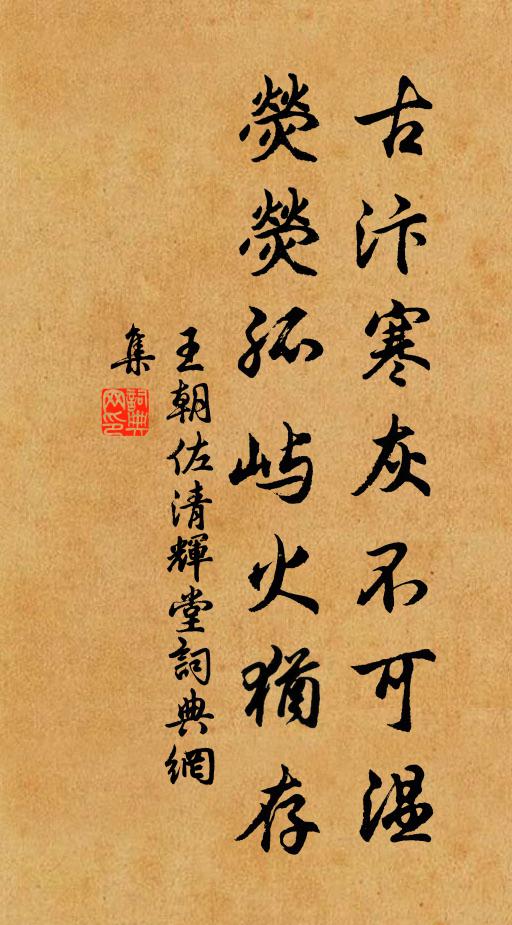 古汴寒灰不可温
荧荧孤屿火犹存
王朝佐清輝堂詞典網
集
詞典
网印